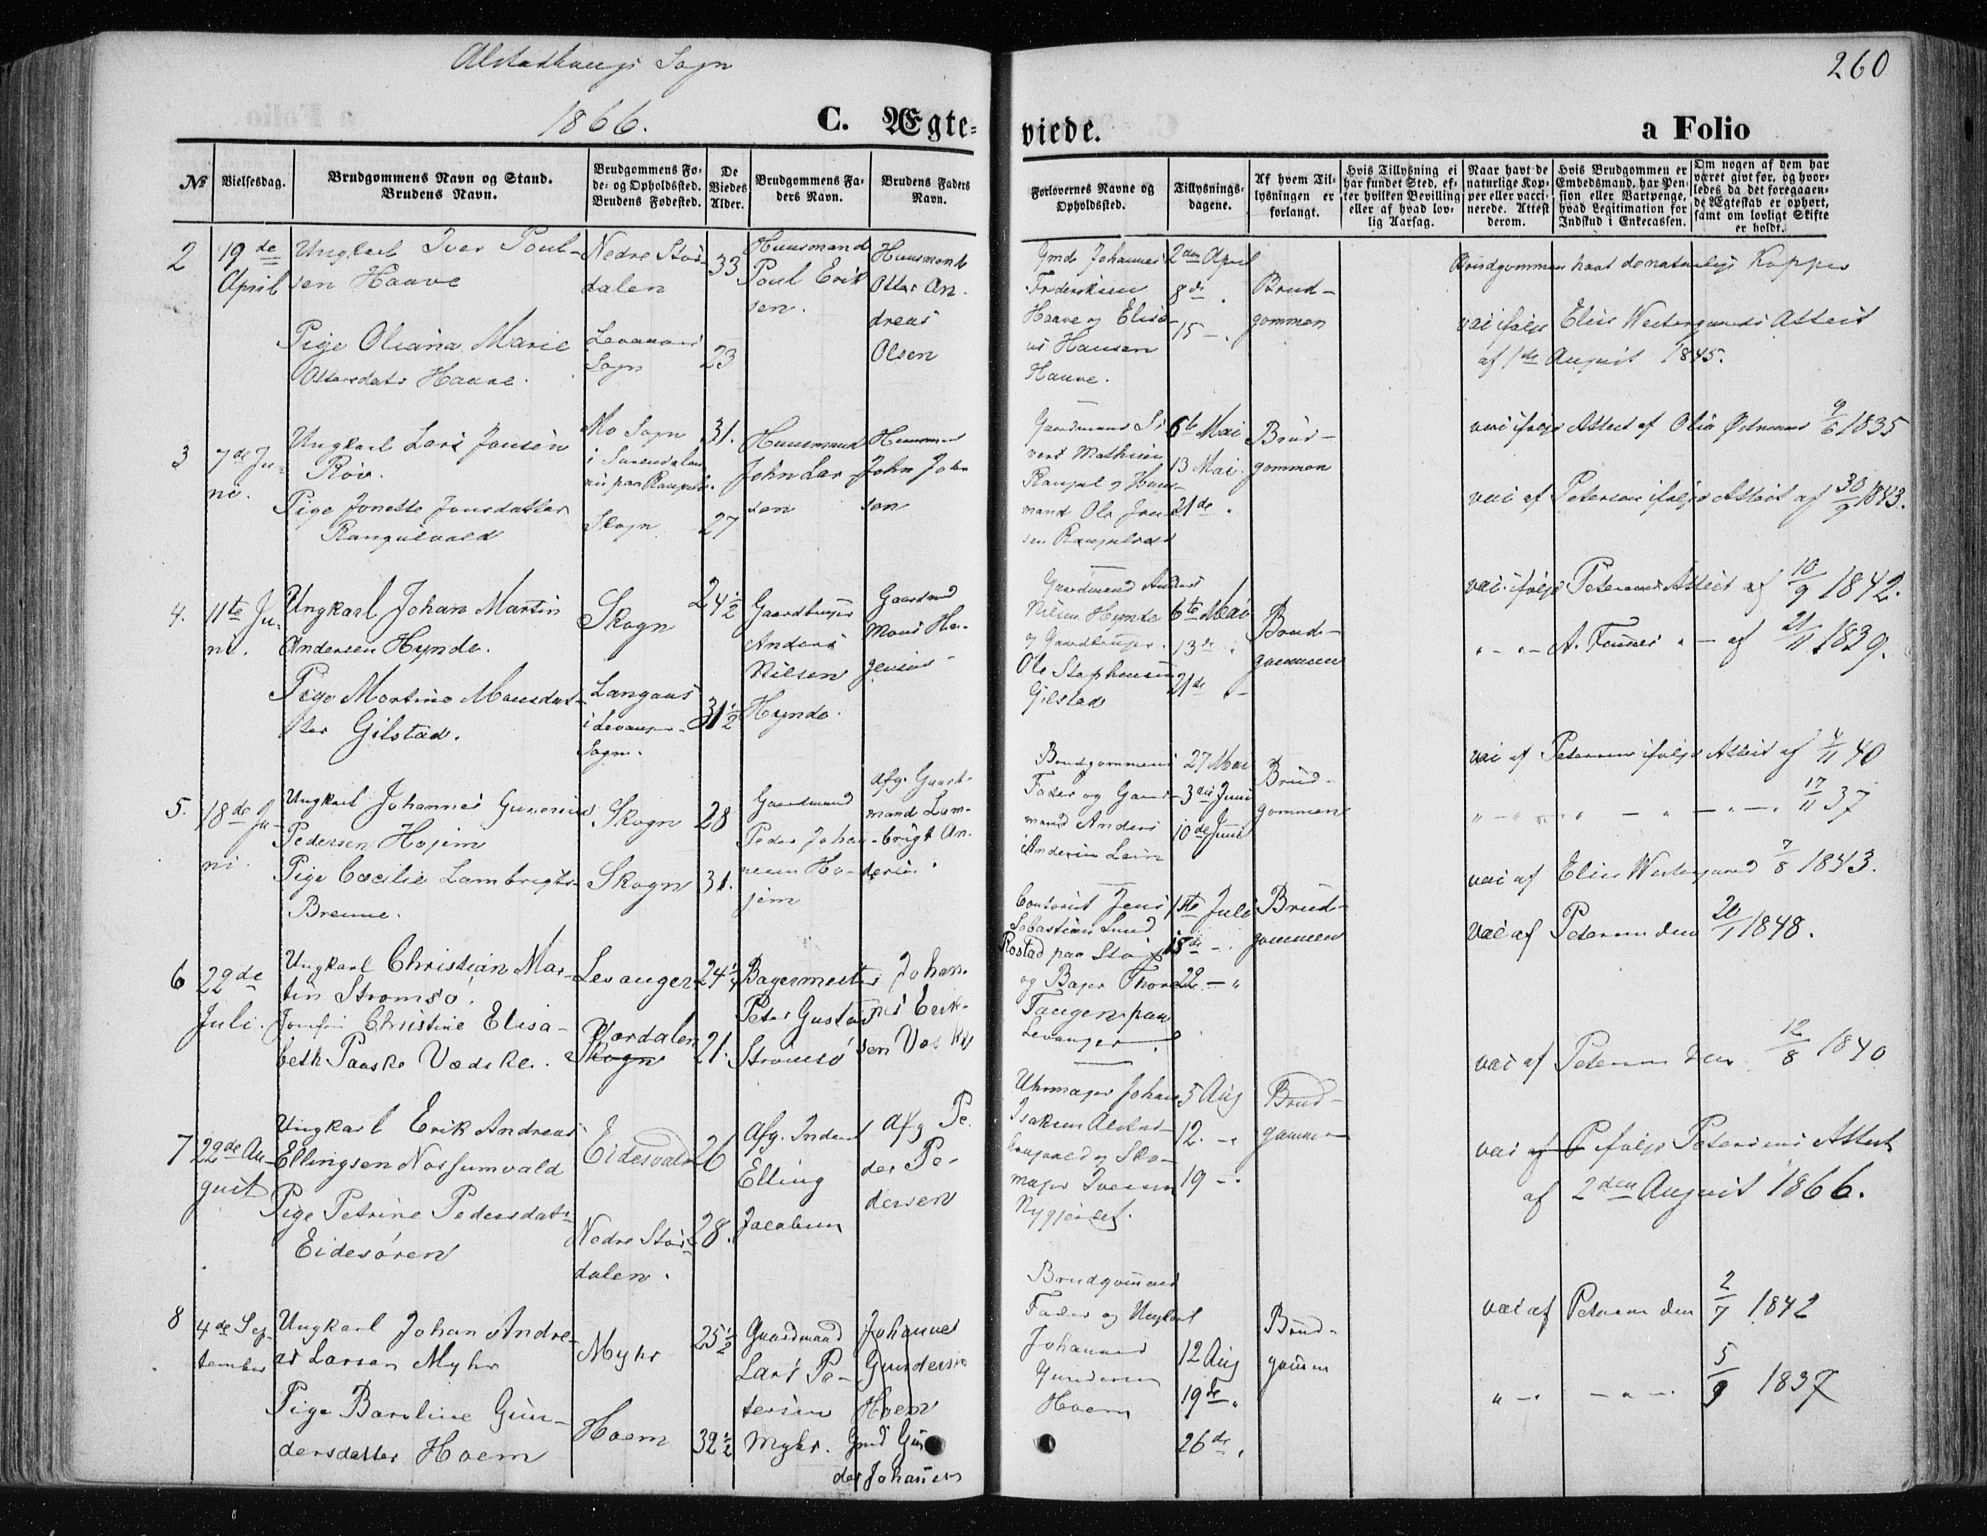 Alstadhougs Sogn
260
1866.
C. Ægte-
viede.
a Folio
№
Vielsesdag.
Brudgommens Navn og Stand.
Brudens Navn.
Brudgommens Fø-
de- og Opholdssted.
Brudens Fødested.
De
Viedes
Alder.
Brudgommens Fa-
ders Navn.
Brudens Faders
Navn.
Forlovernes Navne og
Opholdssted.
Tillysnings-
dagene.
Af hvem Til-
lysningen er
forlangt.
Hvis Tillysning ei
har fundet Sted, ef-
ter hvilken Bevilling
eller af hvad lov-
lig Aarsag.
Naar havt de
naturlige Kop-
per eller vacci-
nerede. Attest
derom.
Hvis Brudgommen er
Embedsmand, har Pen-
sion eller Vartpenge,
hvad Legitimation for
Indskud i Enkecassen.
Om nogen af dem har
været givt før, og hvor-
ledes da det foregaaen-
de Ægteskab er ophørt,
samt om lovligt Skifte
er holdt.
2
19de
April
Ungkarl Iver Poul-
sen Haave
Pige Oliana Marie
Ottersdatr Haave.
Nedre Stør-
dalen
Levanger
Sogn
33
23
Huusmand
Poul Erik
sen.
Huusmand
Otter An-
dreas
Olsen
Gmd Johannes
Frderiksen
Haave og Elisæ
us Hansen
Haave.
2den April
8de .
15 - .
Brud-
gommen
Brudgommen havt de naturlige Kopper
vac ifølge Elies Westergaards Attest
af 1ste August 1845.
3
7de Ju-
ni.
Ungkarl Lars Jonsen
Röv.
Pige Jonette Jonsdatter
Rangulvald
Mo Sogn
i Surendalen
nu paa
Skogn
31.
27
Huusmand
John Lar-
sen
Huusmand
John John
sen
Gaardmand Si
vert Mathisen
og Huus-
mand Ole Jon
sen
6te Mai
13 Mai.
21de .
Brud-
gommen
vac ifølge Attest af Olia Ødmans 9/6 1835
vac af Petersen ifølge Attest af 30/9 1843.
4.
11te Ju-
ni.
Ungkarl Johan Martin
Andersen Hynde.
Pige Martine Monsdat-
ter Gilstad.
Skogn
Langaas
i Levanger
Sogn.
24 1/2
31 1/2
Gaardbruger
Anders
Nilsen
Hynde.
Gaardmd
Mons Ha-
Gaardmand Anders
Nilsen Hynde
og Gaardbruger
Ole Stephensen
Gilstad
6te Mai
13de .
21de -
Brud-
gommen
vac. ifølge Petersens Attest af 10/9 1842.
" - " - A. " - af 21/11 1839.
5.
18de Ju-
ni
Ungkarl Johannes Gunerius
Pedersen Hojem
Pige Cæcilie Lambrigts-
Brenne.
Skogn
Skogn
28
31.
Gaardmand
Peder Johan-
nesen Ho-
jem
Afg. Gaard-
mand Lam-
brigt An-
dersen.
Brudgommens
Fader og Gaard-
mand Anders
Andersen
27 Mai
3die Juni
10de Juni
Brud-
gommen
vac af Petersen ifølge Attest af 4/11 40
" - " - " - " - " - . 17/11 37
6
22de
Juli.
Ungkarl Christian Mar-
tin Strømsö.
Jomfru Christine Elisa-
beth Paaske Vædske.
Levanger
Værdalen
Skogn
24 1/4
21.
Bagermester
Peter Gustav
Strømsö
Johan-
nes Erik-
sen
Contorist Jens
Sebastian Lund
Rostad paa
og Bager Thore
Tangen paa
Levanger.
1ste Juli
15de - .
22 - "
Brud-
gommen
vac af Elies Westergaard 7/8 1843.
vac af Petersen den 20/1 1848.
7
22de Au-
gust
Ungkarl Erik Andreas
Ellingsen Nossumvald
Pige Petrine Pedersdatr
Eidesören
Eidesvald
Nedre Stör-
dalen.
26
28.
Afg. Inderst
Elling
Jacobsen
Afg Pe-
der Pe-
dersen
Uhrmager Johan
Isaksen
og Sko-
mager Iversen
5 Aug
12. - "
19 - .
Brud-
gommen
vac af Petersen den 12/8 1840
vac af P ifølge Petersens Attest
af 2den August 1866.
8
4de Sep
tember
Ungkarl Johan Andre-
as Larsen Myhr
Pige Baroline Gun-
dersdatter Hoem
Myhr
Hoem
25 1/2
32 1/2
Gaardmand
Lars Pe-
tersen
Myhr.
Johannes
Gundersen
Hoem
Gmd Gun
der Johansen
Brudgommens
Fader og Ungkarl
Johannes
Gundersen
Hoem
12 Aug
19de .
26de .
Brud-
gommen
vac af Petersen den 2/7 1842
" - . - " - . 5/9 1837